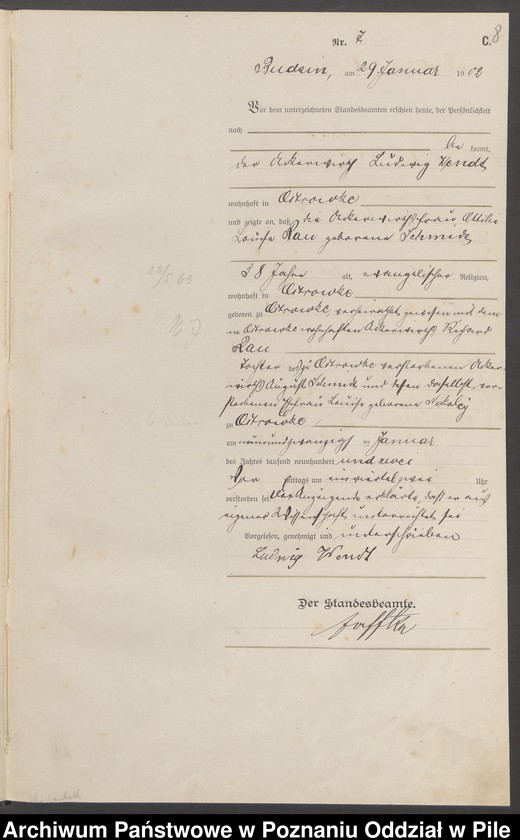 8
Nr. 7 C.
Budsin, am 29 Januar 1902
Vor dem unterzeichneten Standesbeamten erschien heute, der Persönlichkeit
nach
be kannt,
der Ackerwirth Ludwig Wendt
wohnhaft in Ostrowke
und zeigte an, daß die Ackerwirthsfrau Ottilie
Louise Rau geborene Schmidt
38 Jahre alt, evangelischer Religion,
wohnhaft in Ostrowke
geboren zu Ostrowke, verheirathet gewesen mit dem
in Ostrowke wohnhaften Ackerwirth Richard
Rau
Tochter des zu Ostrowke verstorbenen Acker-
wirths August Schmidt und dessen daselbst ver-
storbenen Ehefrau Louise geborene
zu Ostrowke
am neunundzwanzigsten Januar
des Jahres tausend neunhundert und zwei
Vor mittags um Uhr
verstorben sei. Der Anzeigende erklärte, daß er aus
eigener Wissenschaft unterrichtet sei
Vorgelesen, genehmigt und unterschrieben
Ludwig Wendt
Der Standesbeamte.
Archiwum Państwowe w Poznaniu Oddział w Pile